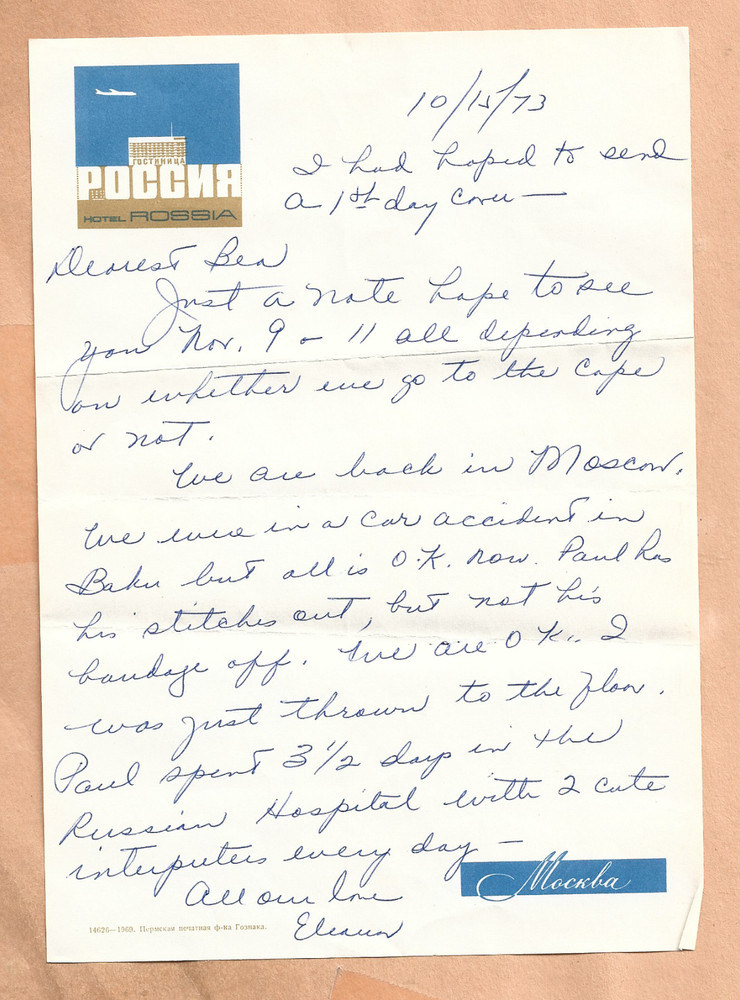 ГОСТИНИЦА
РОССИЯ
HOTEL ROSSIA
10/15/73
I had hoped to send
a 1st day cover —
Dearest Bea
Just a note hope to see
you Nov. 9 - 11 all depending
on whether we go to the Cape
or not.
We are back in Moscow.
We were in a car accident in
Baku but all is O.K. now. Paul has
his stitches out, but not his
bandage off. We are O.K.. I
was just thrown to the floor.
Paul spent 3 1/2 days in the
Russian Hospital with 2 cute
interputers every day —
All our love
Eleanor
Москва
14626—1969. Пермская печатная ф-ка Гознака.